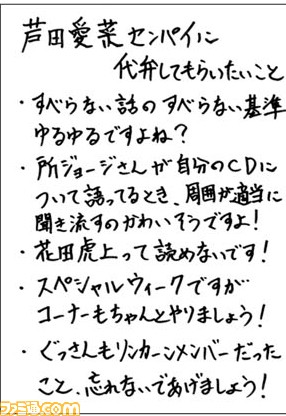 芦田愛菜センパイに
代弁してもらいたいこと
・すべらない話のすべらない基準
ゆるゆるですよね？
・所ジョージさんが自分のCDに
ついて語ってるとき、周囲が適当に
聞き流すのかわいそうですよ！
・花田虎上って読めないです！
・スペシャルウィークですが
コーナーもちゃんとやりましょう！
・ぐっさんもリンカーンメンバーだった
こと、忘れないであげましょう！
ファミ通.com